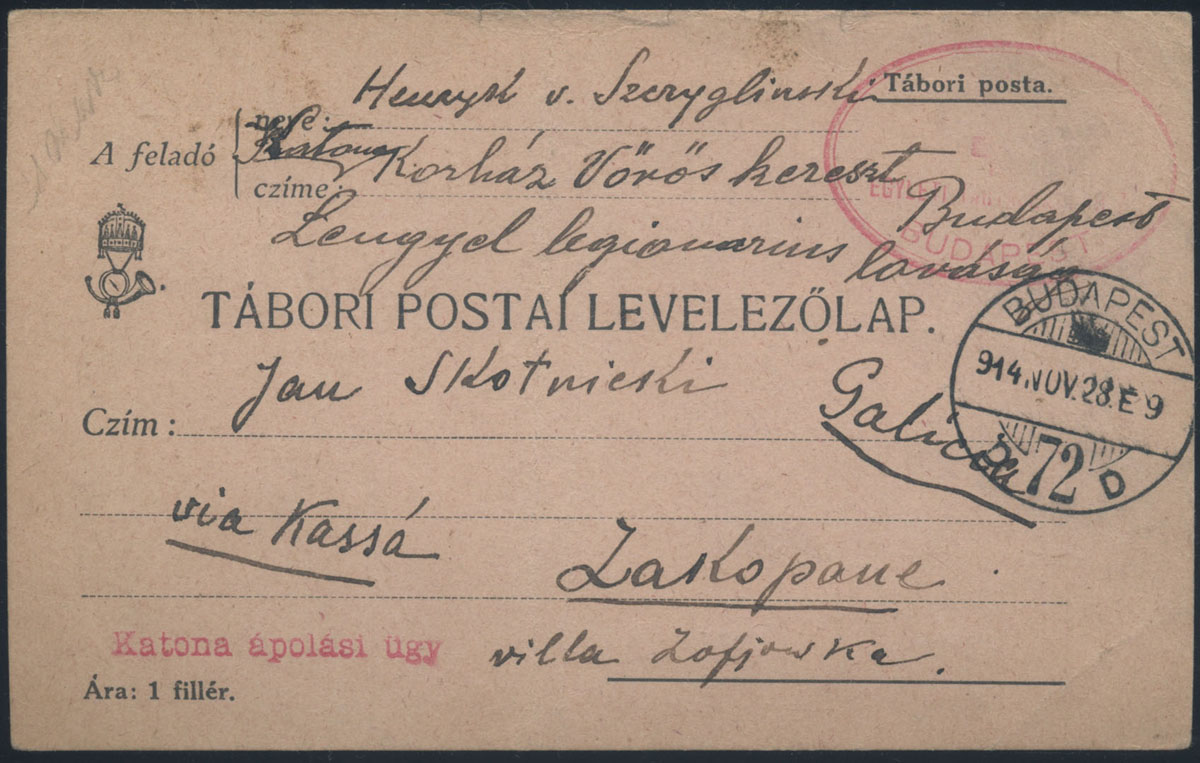 Henryk v. Szeryglinski
Tábori posta.
A feladó
neve:
Katona Korház Vörös kereszt
czíme:
Budapest
Lengyel legionarius lovaság
BUDAPEST
TÁBORI POSTAI LEVELEZŐLAP.
BUDAPEST
914.NOV.28.E 9
72 D
Jan Skotnicki
Czím:
Galicia
via Kassá
Zakopane
Katona ápolási ügy
villa Zofjowka.
Ára: 1 fillér.